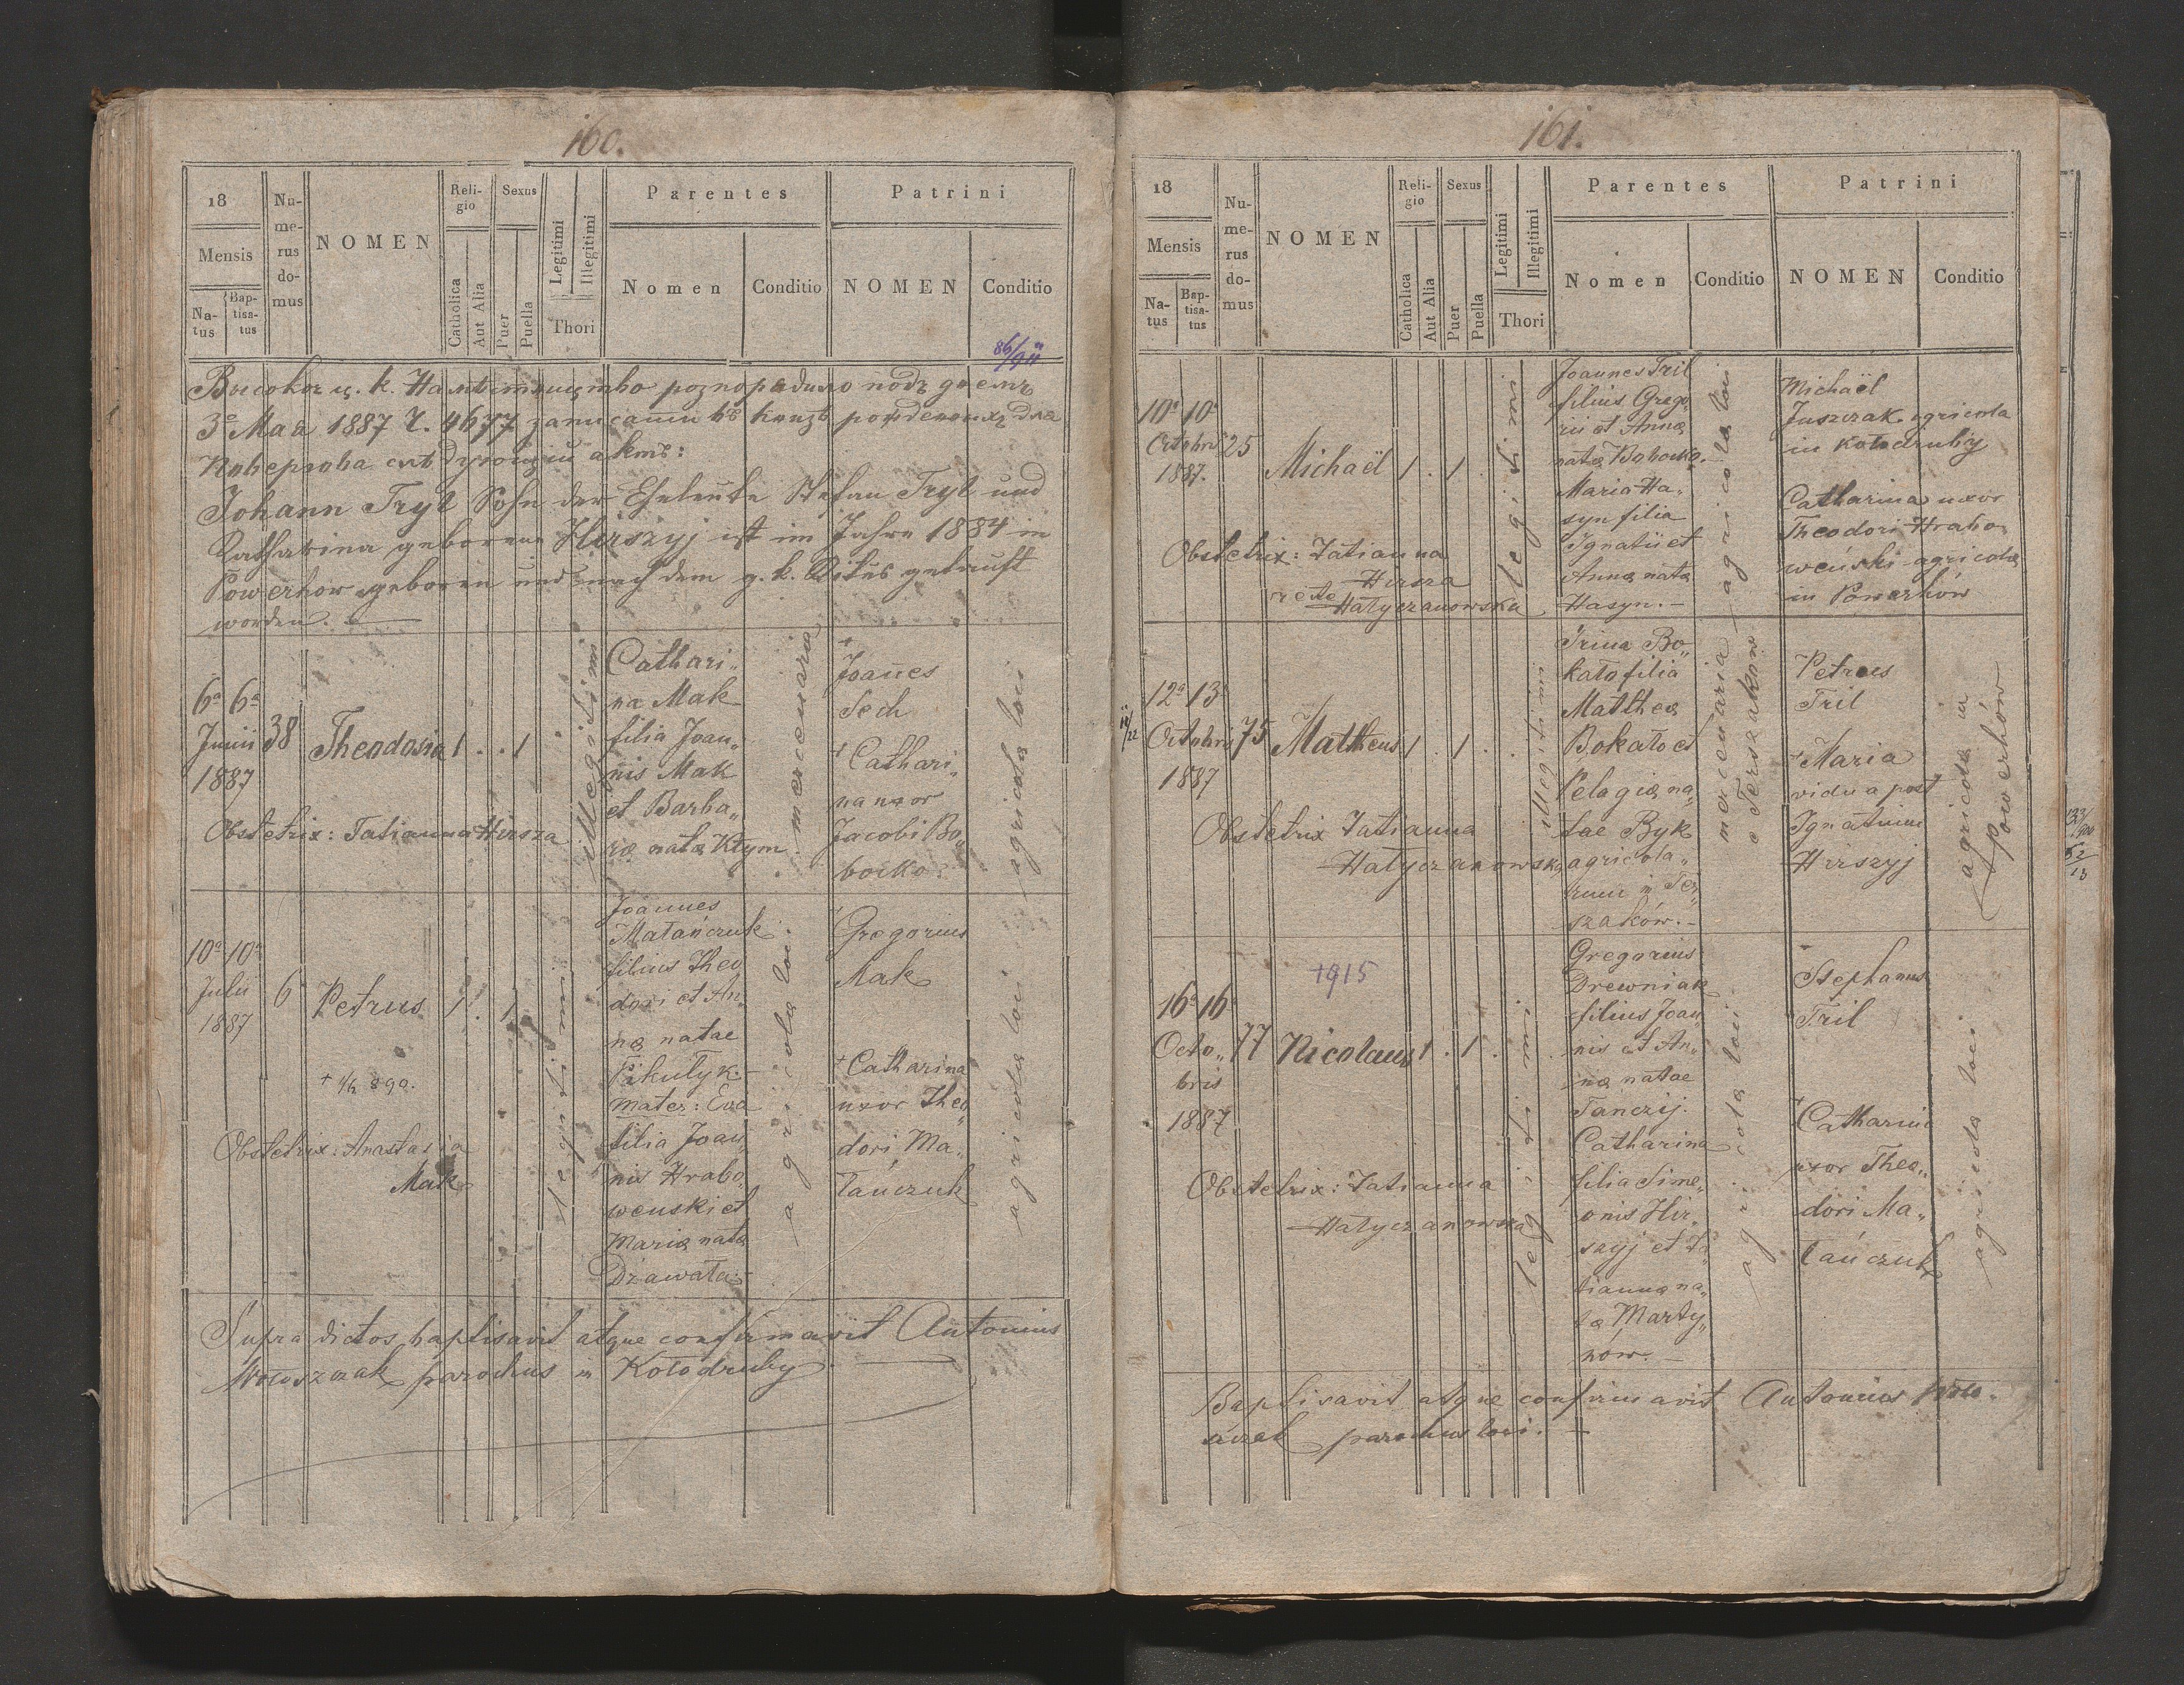 160.
18
Mensis
Na-
tus
Bap-
tisa-
tus
Nu-
me-
rus
do-
mus
NOMEN
Reli-
gio
Catholica
Aut Alia
Sexus
Puer
Puella
Legitimi
Illegitimi
Thori
Parentes
Nomen
Conditio
Patrini
NOMEN
Conditio
Высокое ц. к.
3º Мая 1887 Ч. 4677
Johann Tryl Sohn der Eheleute Stefan Tryl und
Katharina geborene Hirszyj ist im Jahre 1884 in
Powerhow geboren und nach dem g. k. Ritus getauft
worden.
6a 6a
Junii
1887
38
Theodosia
1 . . 1
illegitimi
Cathari„
na Mak
filia Joan„
nis Mak
et Barba„
ræ natæ Kłym.
mercenaria
Joañes
Sech
+ Cathari„
na uxor
Jacobi Bo„
bocko.
agricola loci
Obstetrix: Tatianna Hirsza
10a 10a
Julii
1887
6
Petrus
1 . 1
legitimi
Joannes
Matańczuk
filius Theo
dori et An„
næ natae
Pikulyk.–
Mater: Eva
filia Joan„
nis Hrabo„
wenski et
Mariæ natæ
Dzawała.–
agricola loci.
Gregorius
Mak
+ Catharina
uxor Theo„
dori, Ma„
tańczuk
agricola loci
+ 1/2 890.
Obstetrix: Anastasia
Mak
Supra dictos baptisavit atque confirmavit Antonius
Wołoszczak parochus in Kołodruby
161.
18
Mensis
Na-
tus
Bap-
tisa-
tus
Nu-
me-
rus
do-
mus
NOMEN
Reli-
gio
Catholica
Aut Alia
Sexus
Puer
Puella
Legitimi
Illegitimi
Thori
Parentes
Nomen
Conditio
Patrini
NOMEN
Conditio
10a 10a
Octobris
1887.
25
Michaël
1 . 1
legitimi
Joannes Tril
filius Grego
rii et Annæ
natæ Bobocko.–
Maria Ha„
syn filia
Ignatii et
Annæ natæ
Hasyn.–
agricola loci
Michaël
Juszczak agricola
in Kołodruby
Catharina uxor
Theodori Hrabo„
weński agricola
in Powerhów
Obstetrix: Tatianna
Hirsza
recte Hałyczanowska
12a 13a
Octobris
1887
75
Mattheus
1 . 1 .
illegitimi
Irina Bo„
kało filia
Matthea
Bokało et
Pelagiæ na„
tae Byk
agricola„
rum in Ter„
szaków.–
mercenaria
e Terszaków
Petrus
Tril
Maria
vidua post
Ignatium
Hirszyj
agricola in
Powerhów
Obstetrix Tatianna
Hałyczanowska
16a 16a
Octo„
bris
1887
77
+915
Nicolaus
1 . 1 .
legitimi
Gregorius
Drewniak
filius Joan
nis et An„
næ natae
Tanczij.
Catharina
filia Sime„
onis Hir„
szyj et Ta
tiannæ na„
tæ Marty„
nów.–
agricola loci.
Stephanus
Tril
Catharina
uxor Theo„
dori Ma„
tańczuk
agricola loci
Obstetrix: Tatianna
Hałyczanowska
Baptisavit atque confirmavit Antonius Woło.
szczak parochus loci.–